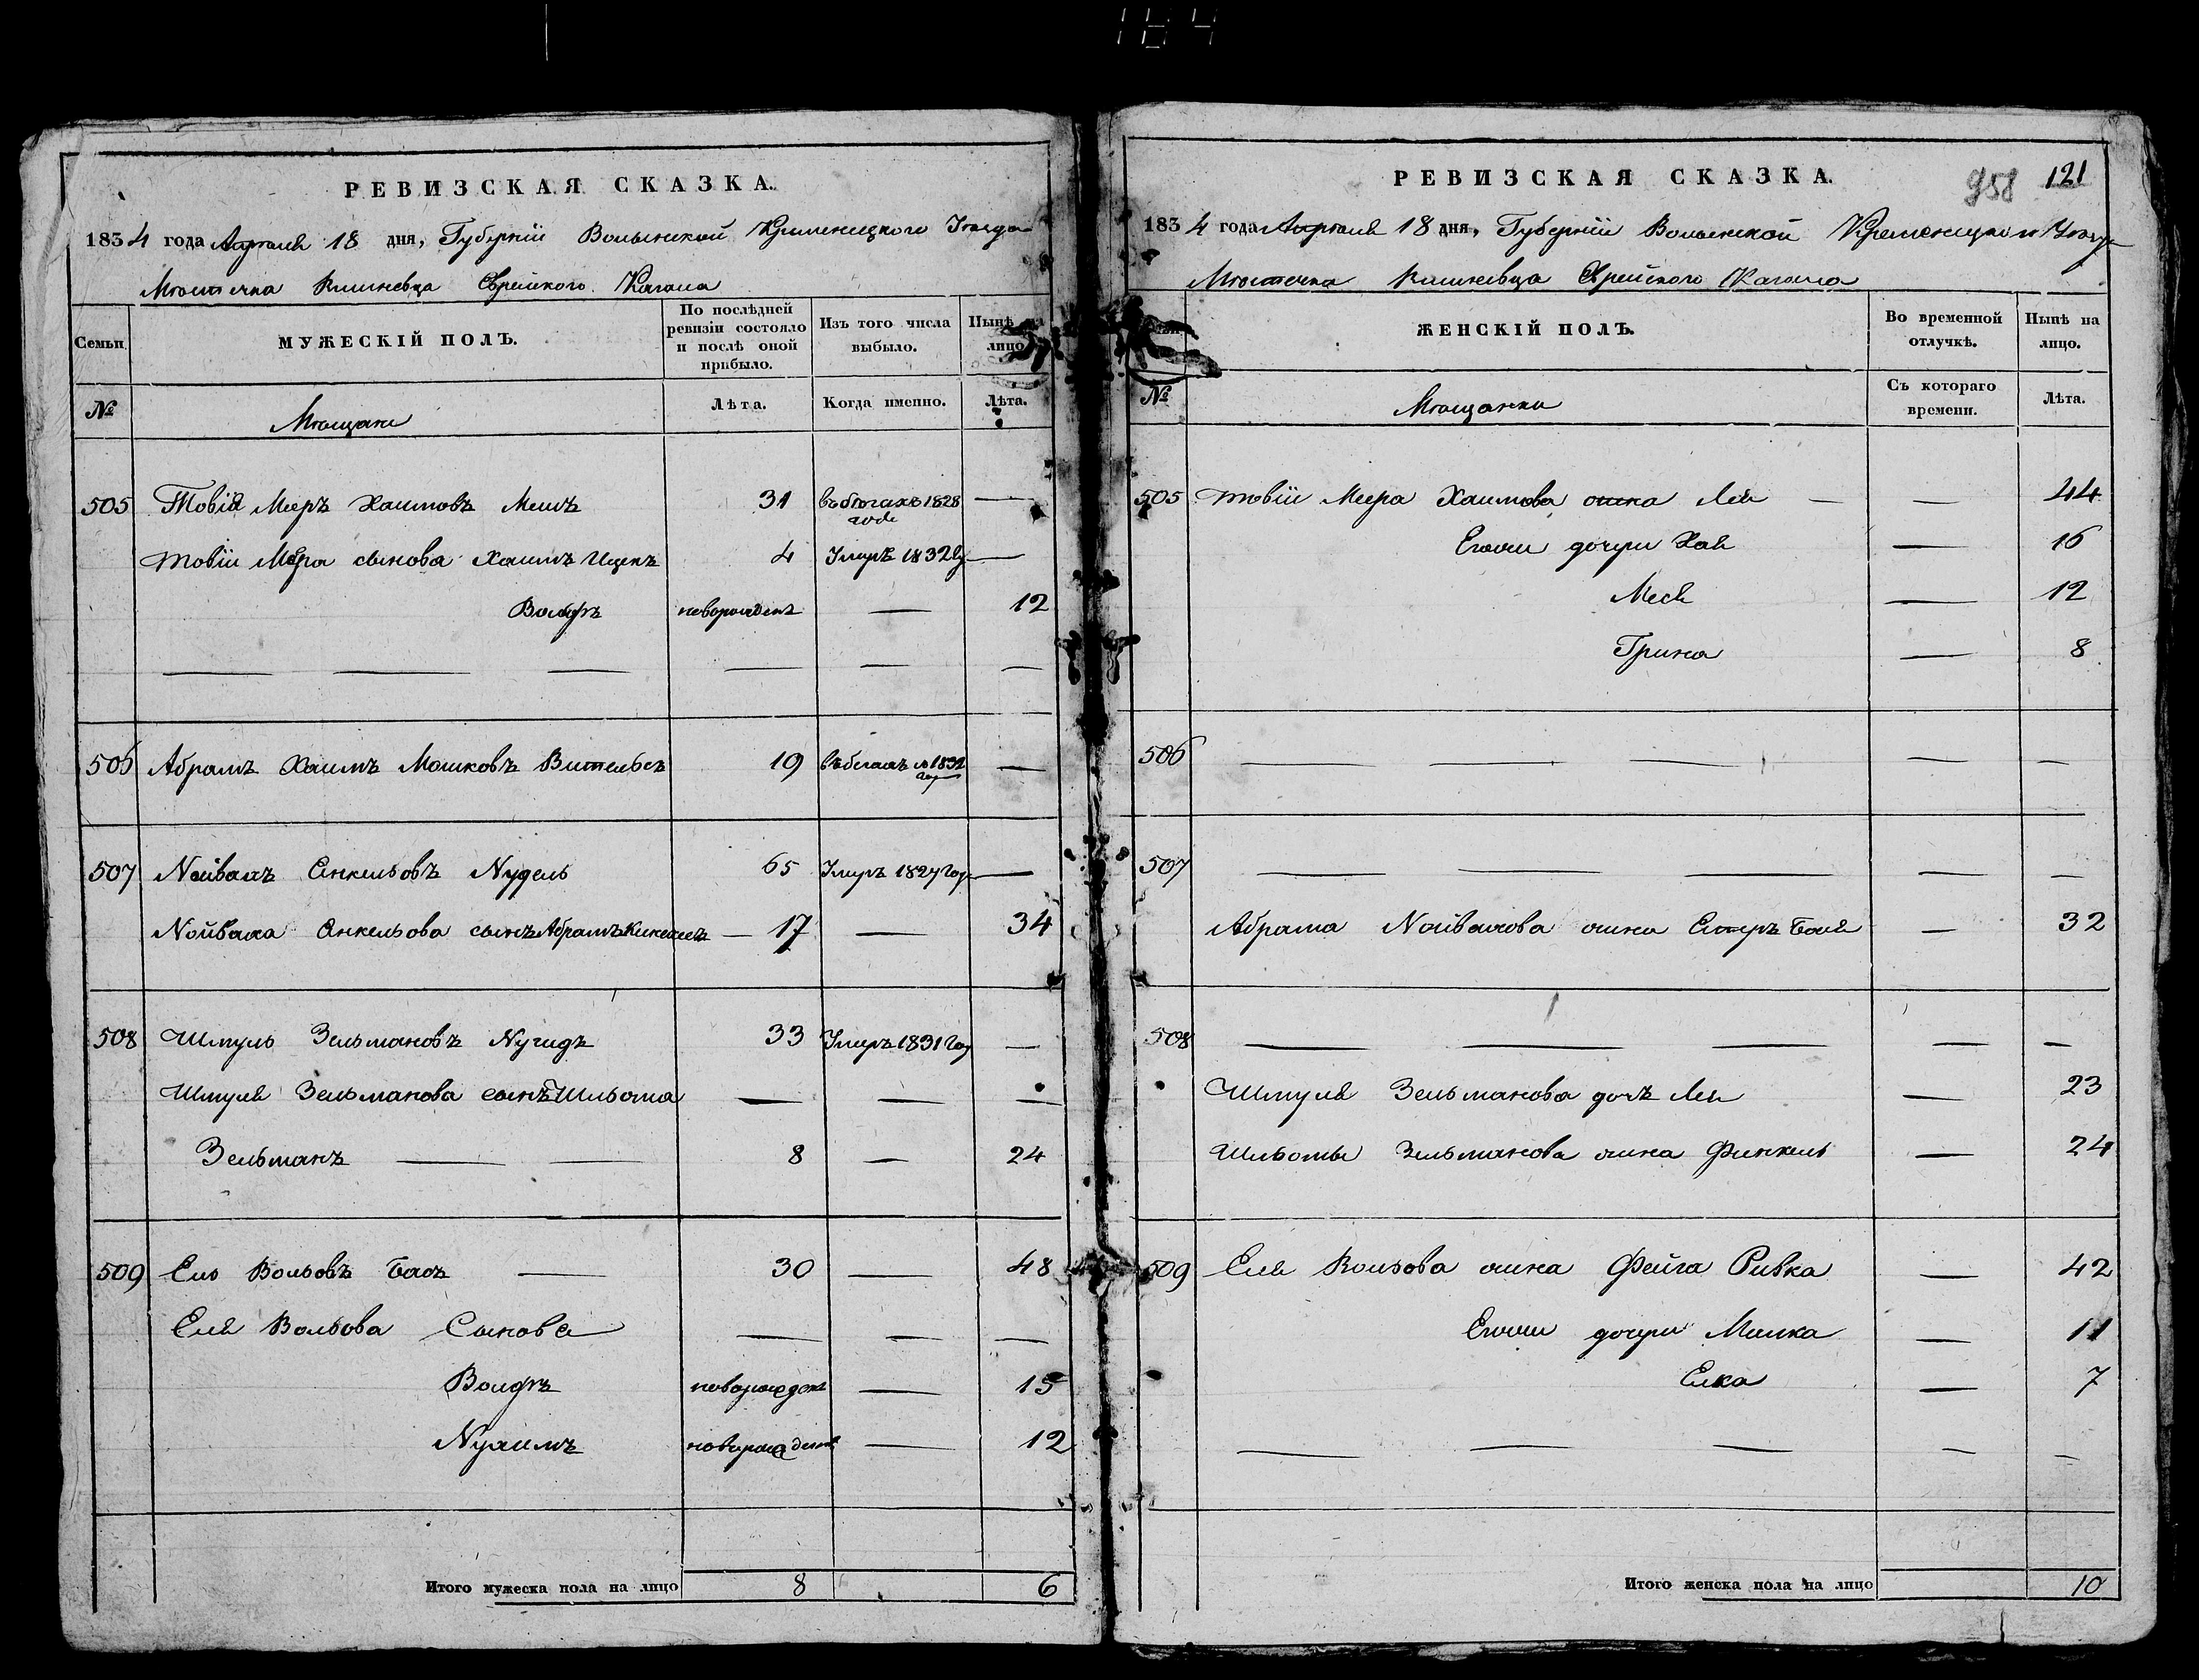 184
РЕВИЗСКАЯ СКАЗКА.
1834 года Апреля 18 дня, Губерніи Волынской Кременецкого Уезда
Местечка Вишневца Еврейского Кагала
Семьи
МУЖЕСКІЙ ПОЛЪ.
По послѣдней ревизіи состояло и послѣ оной прибыло.
Изъ того числа выбыло.
Нынѣ на лицо
№
Мещане
Лѣта.
Когда именно.
Лѣта.
505 Товія Меръ Хаимовъ 31 въ бегахъ 1828 года —
Товіи Мера сынова Хаимъ Ицекъ 4 Умръ 1832 —
Вольфъ новорожденъ — 12
— — — — — —
506 Абрамъ Хаимъ Мошковъ 19 въ бегахъ 1832 —
507 Нойвахъ Янкельовъ Нудель 65 Умръ 1827 Год —
Нойваха Янкельова сынъ Абрамъ — 17 — 34
508 Шмуль Зельмановъ 33 Умръ 1831 Год —
Шмуля Зельманова сынъ Шльома — — —
Зельманъ — — 8 — 24
509 Ель Вольовъ Басъ — 30 — 48
Еля Вольова Сынове — — —
Вольфъ новорожденъ — 15
Нухимъ новорожденъ — 12
Итого мужеска пола на лицо 8 6
РЕВИЗСКАЯ СКАЗКА.
958 121
1834 года Апреля 18 дня, Губерніи Волынской Кременецкого Уезда
Местечка Вишневца Еврейского Кагала
ЖЕНСКІЙ ПОЛЪ.
Во временной отлучкѣ.
Нынѣ на лицо.
№
Мещанки
Съ котораго времени.
Лѣта.
505 Товіи Мера Хаимова жена Лея — — 44
Егожи дочери Хая — 16
Меся — 12
Грина — 8
506 — — — — —
507 — — — — —
Абрама Нойвахова жена Естеръ Бася — 32
508 — — — — —
Шмуля Зельманова дочъ Лея — 23
Шльомы Зельманова жена Финкель — 24
509 Еля Вольова жена Фейга Ривка — 42
Егожи дочери Малка — 11
Елка — 7
— — — — —
Итого женска пола на лицо 10